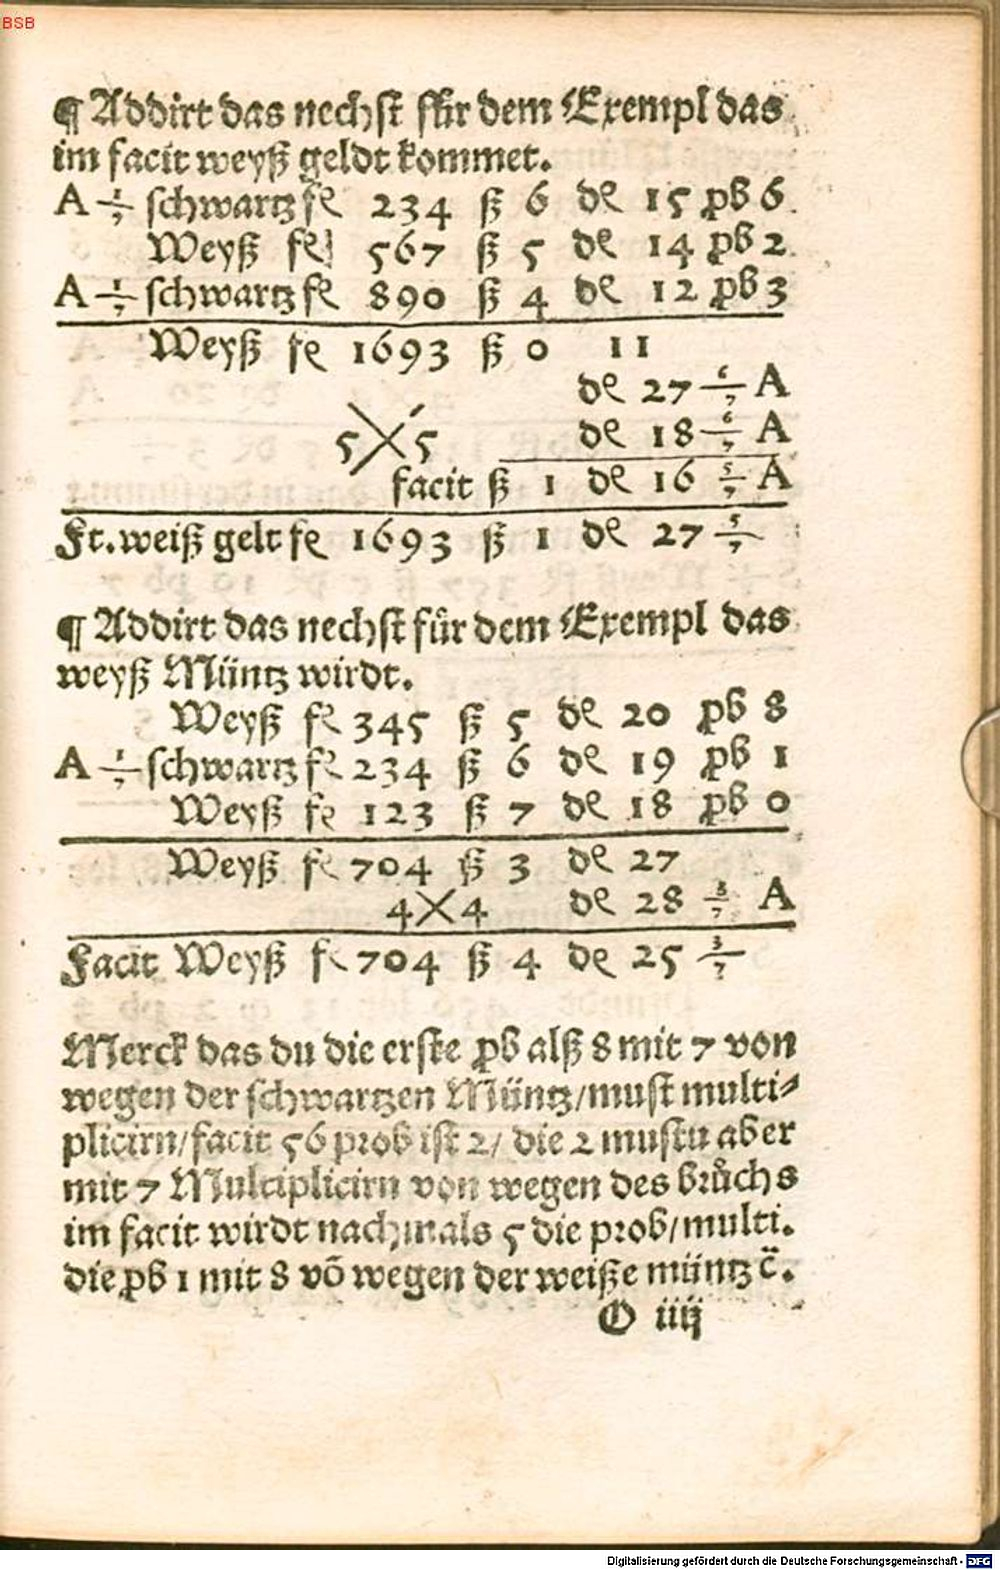 BSB
¶ Addirt das nechst für dem Exempl das
im facit weyß geldt kommet.
A ÷ 1/7 schwartz fl 234 ß 6 de 15 pb 6
Weyß fl 567 ß 5 de 14 pb 2
A ÷ 1/7 schwartz fl 890 ß 4 de 12 pb 3
Weyß fl 1693 ß 0 11
de 27 6/7 A
5 X 5 de 18 6/7 A
facit ß 1 de 16 5/7 A
Ft. weiß gelt fl 1693 ß 1 de 27 5/7
¶ Addirt das nechst für dem Exempl das
weyß Müntz wirdt.
Weyß fl 345 ß 5 de 20 pb 8
A 1/7 schwartz fl 234 ß 6 de 19 pb 1
Weyß fl 123 ß 7 de 18 pb 0
Weyß fl 704 ß 3 de 27
4 X 4 de 28 3/7 A
Facit Weyß fl 704 ß 4 de 25 3/7
Merck das du die erste pb alß 8 mit 7 von
wegen der schwartzen Müntz/must multi⸗
plicirn/facit 56 prob ist 2/ die 2 mustu aber
mit 7 Multiplicirn von wegen des bruͦchs
im facit wirdt nachmals 5 die prob/multi.
die pb 1 mit 8 võ wegen der weiße müntz ꝛc.
O iiij
Digitalisierung gefördert durch die Deutsche Forschungsgemeinschaft - DFG